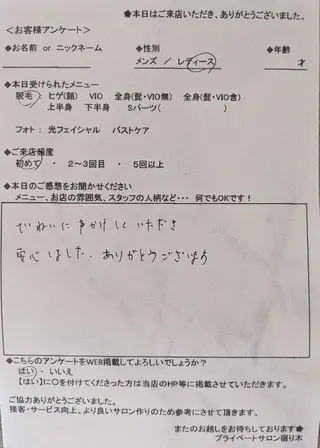 ★本日はご来店いただき、ありがとうございました。
<お客様アンケート>
◆お名前 or ニックネーム ◆性別 ◆年齢
メンズ / レディース 才
◆本日受けられたメニュー
脱毛: ヒゲ(顔) VIO 全身(髭・VIO無) 全身(髭・VIO含)
上半身 下半身 Sパーツ( )
フォト: 光フェイシャル バストケア
◆ご来店頻度
初めて ・ 2～3回目 ・ 5回以上
◆本日のご感想をお聞かせください
メニュー、お店の雰囲気、スタッフの人柄など・・・ 何でもOKです!
ていねいに声かけしていただき
安心しました。ありがとうございます
◆こちらのアンケートをWEB掲載してよろしいでしょうか?
はい ・ いいえ
【はい】に○を付けてくださった方は当店のHP等に掲載させていただきます。
ご協力ありがとうございました。
接客・サービス向上、より良いサロン作りのため参考にさせて頂きます。
またのお越しをお待ちしております★
プライベートサロン宿り木